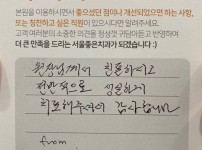 본원을 이용하시면서 좋으셨던 점이나 개선되었으면 하는 사항,
또는 칭찬하고 싶은 직원이 있으시다면 알려주세요.
고객 여러분의 소중한 의견을 정성껏 귀담아듣고 반영하여
더 큰 만족을 드리는 서울좋은치과가 되겠습니다 :)
원장님께서 친절하시고
전반적으로 성실하게
치료해주셔서 감사합니다
from